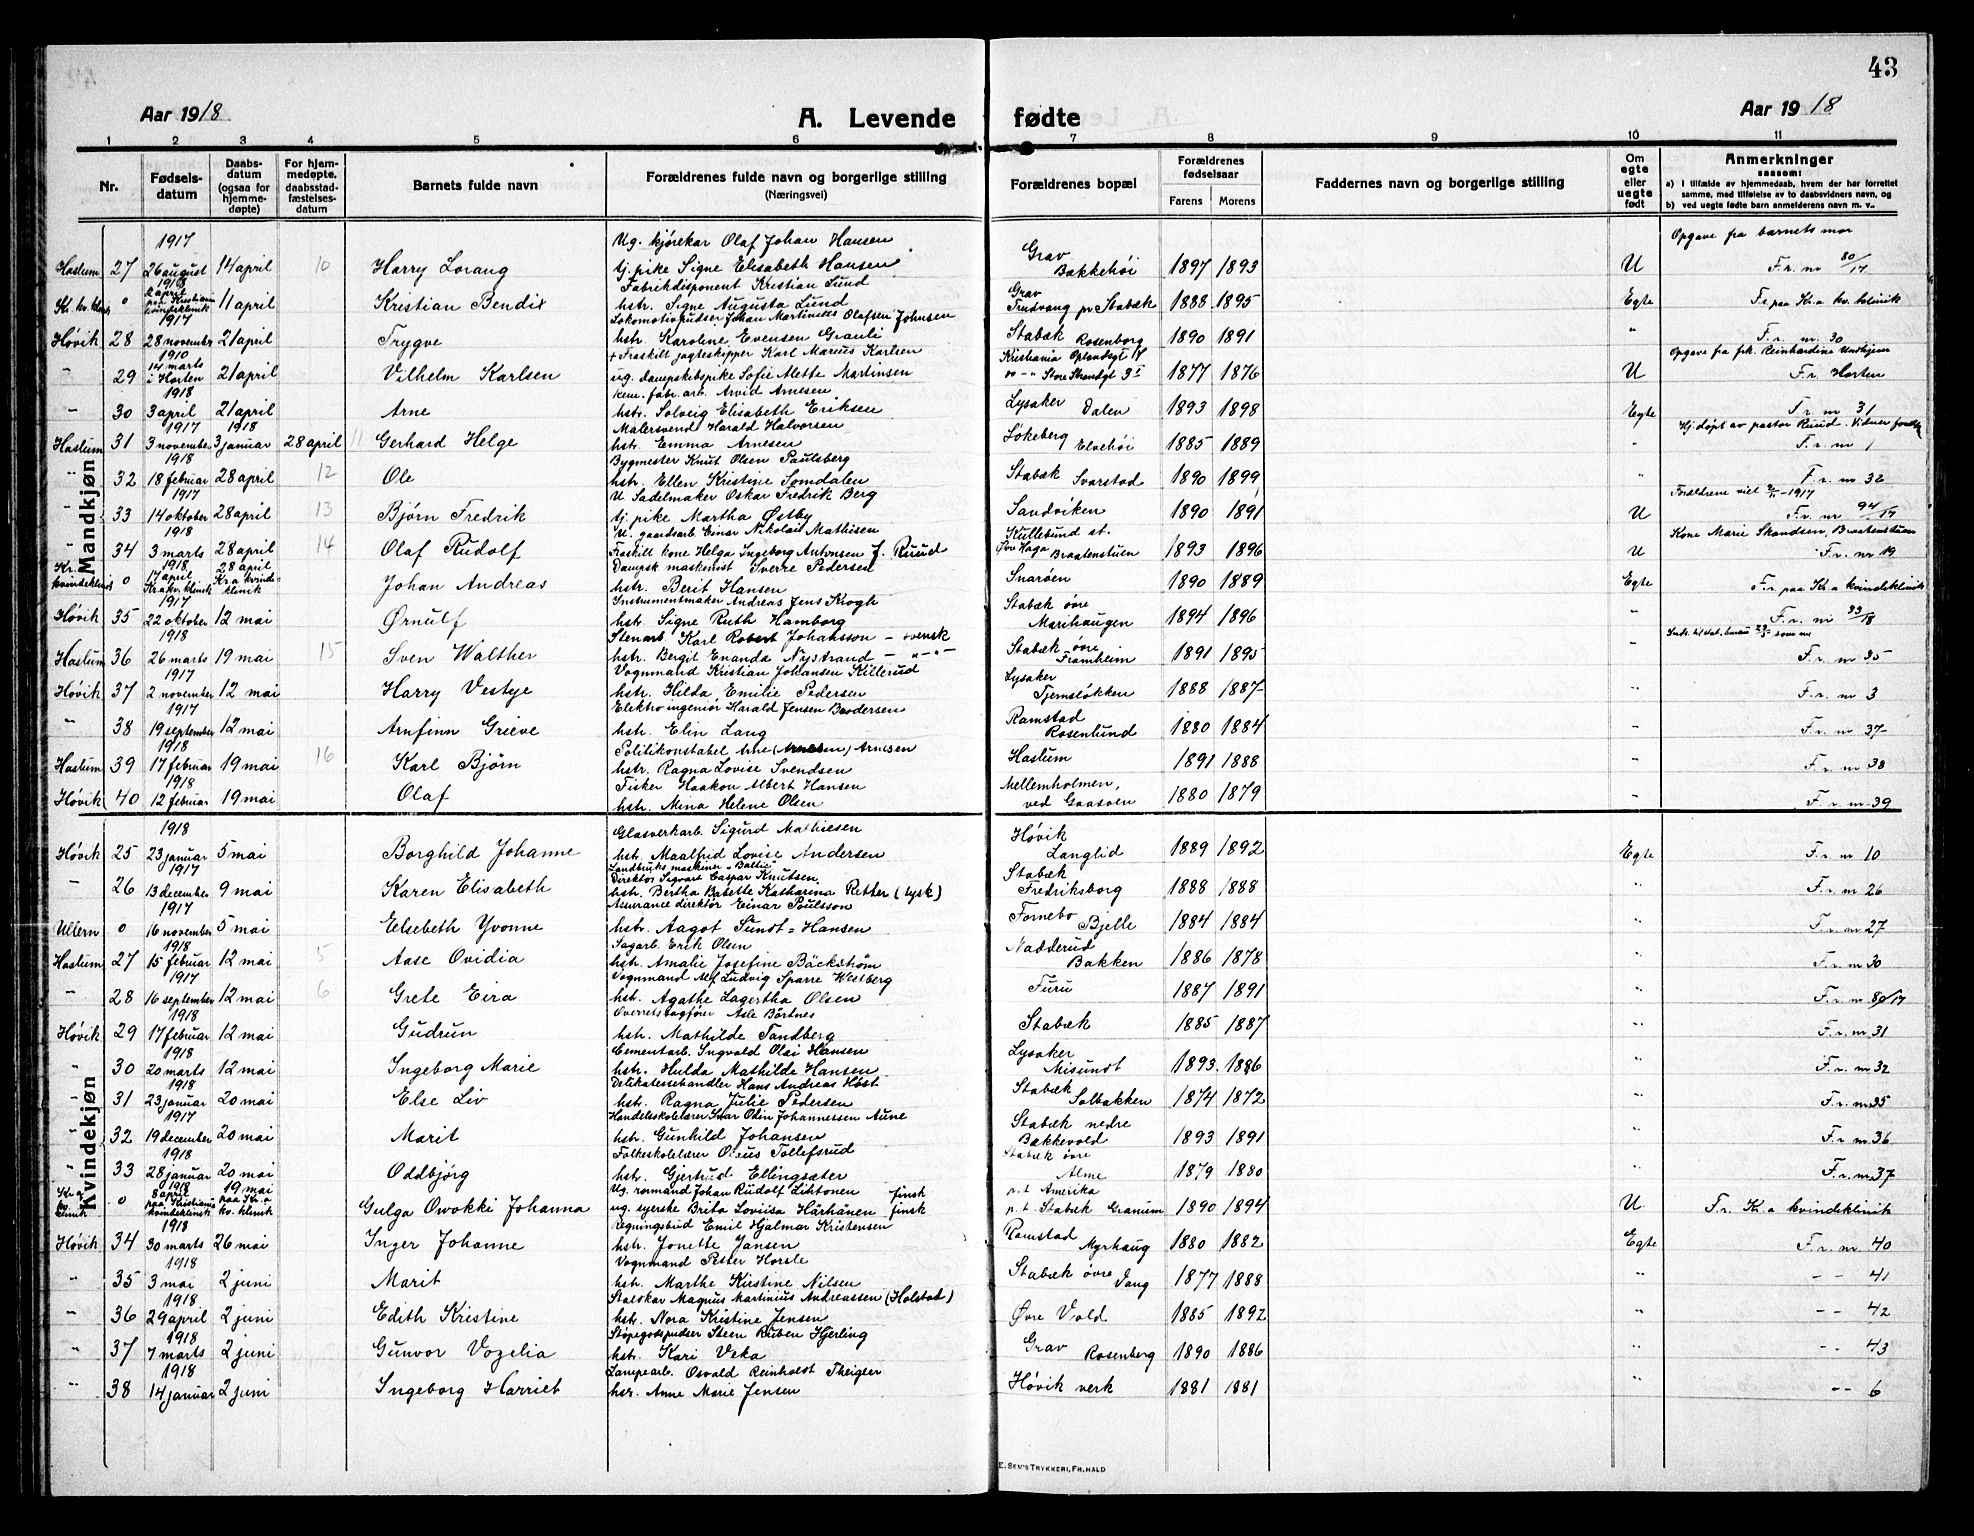 43
Aar 1918. A. Levende fødte Aar 1918
1 2 3 4 5 6 7 8 9 10 11
Nr. Fødselsdatum Daabsdatum (ogsaa for hjemmedøpte) For hjemmedøpte, daabsstadfæstelsesdatum Barnets fulde navn Forældrenes fulde navn og borgerlige stilling (Næringsvei) Forældrenes bopæl Forældrenes fødselsaar Farens Morens Faddernes navn og borgerlige stilling Om egte eller uegte født Anmerkninger saasom:
a) I tilfælde av hjemmedaab, hvem der har forrettet samme, med tilføielse av to daabsvidners navn, og
b) ved uegte fødte barn anmelderens navn m. v..
Mandkjøn
1917 Ug. kjørekar Olaf Johan Hansen Grav Opgave fra barnets mor
Haslum 27 26 august 14 april 10 Harry Lorang tj. pike Signe Elisabeth Hansen Bakkehøi 1897 1893 U F. r. nr 80/17
1918 Fabrikdisponent Kristian Lund Grav
Kr. kv. klinik 0 2 april paa Kristiania kvindeklinik 11 april Kristian Bendix hstr. Signe Augusta Lund Trudvang pr Stabæk 1888 1895 Egte F. r. paa Kr.a kv. klinik
1917 Lokomotivpudser Johan Martinius Olafsen Johnsen
Høvik 28 28 november 21 april Trygve hstr. Karoline Evensen Grauli Stabæk Rosenborg 1890 1891 " F. r. nr. 30
1910 + Fraskilt jagteskipper Karl Marius Karlsen Kristiania Oplandsgt 14 Opgave fra frk. Reinhardine Undhjem
" 29 14 marts i Horten 21 april Vilhelm Karlsen ug. dampskibspike Sofie Alette Martinsen Store Strandgt 3 I 1877 1876 U F. r. Horten
1918 kem. fabr. arb. Arvid Arnesen Lysaker
" 30 3 april 21 april Arne hstr. Solveig Elisabeth Eriksen Dalen 1893 1898 Egte F. r. nr 31
1917 1918 Malersvend Harald Halvorsen Løkeberg Hj. døpt av pastor Ruud.
Haslum 31 3 november 3 januar 28 april 11 Gerhard Helge hstr. Emma Arnesen Elvehøi 1885 1889 " F. r. nr 1
1918 Bygmester Knut Olsen Paulsberg
" 32 18 februar 28 april 12 Ole hstr. Ellen Kristine Somdalen Stabæk Svarstad 1890 1899 " F. r. nr 32
1917 U Sadelmaker Oskar Fredrik Berg Forældrene viet 1917
" 33 14 oktober 28 april 13 Bjørn Fredrik tj. pike Martha Østby Sandviken 1890 1891 U F. r. nr 94/17
1918 U. gaardsarb. Einar Nikolai Mathisen Kullebund st. Kone Marie Skandsen, Braatenstuen
" 34 3 marts 28 april 14 Olaf Rudolf Fraskilt kone Helga Ingeborg Antonsen f. Ruud Øvre Haga Braatenstuen 1893 1896 U F. r. nr 19
1918 28 april Dampsk maskinist Sverre Pedersen
Kr. kvindeklinik 0 17 april Kr.a kv. klinik Kr.a kvindeklinik Johan Andreas hstr. Berit Hansen Snarøen 1890 1889 Egte F. r. paa Kr.a kvindeklinik
1917 Instrumentmaker Andreas Jens Krogh Stabæk øvre
Høvik 35 22 oktober 12 mai Ørnulf hstr. Signe Ruth Hamborg Marihaugen 1894 1896 " F. r. nr 33/18
1918 Stenarb. Karl Robert Johansson - svensk Stabæk øvre
Haslum 36 26 marts 19 mai 15 Sven Walther hstr. Bergit Enanda Nystrand - " - Framheim 1891 1895 - F. r. nr 35
1917 Vognmand Kristian Johansen Killerud Lysaker
Høvik 37 2 november 12 mai Harry Vestye hstr. Hilda Emilie Pedersen Tjernsløkken 1888 1887 " F. r. nr 3
1917 Elektroingeniør Harald Jensen Brodersen Ramstad
" 38 19 september 12 mai Arnfinn Grieve hstr. Elin Lang Rosenlund 1880 1884 - F. r. nr 37
1918 Politikonstabel Arne (Arnesen) Arnesen Haslum
Haslum 39 17 februar 19 mai 16 Karl Bjørn hstr. Ragna Lovise Svendsen 1891 1888 " F. r. nr 38
1918 Fisker Haakon Albert Hansen Mellemholmen,
Høvik 40 12 februar 19 mai Olaf hstr. Mina Helene Olsen ved Gaasøen 1880 1879 - F. r. nr. 39
Kvindekjøn
1918 Glasverkarb. Sigurd Mathiesen Høvik
Høvik 25 23 januar 5 mai Borghild Johanne hstr. Maalfrid Lovise Andersen Langlid 1889 1892 Egte F. r. nr 10
1917 Landbruks maskiner "Baltic" Direktør Sigvart Caspar Knutsen Stabæk
" 26 13 december 9 mai Karen Elisabeth hstr. Bertha Babette Katharina Retter (tysk) Fredriksborg 1888 1888 " F. r. nr 26
1917 Assurance direktør Einar Poulsson Fornebo
Ullern 0 16 november 5 mai Elsebeth Yvonne hstr. Aagot Sundt-Hansen Bjelle 1884 1884 " F. r. nr 27
1918 Sagarb. Erik Olsen Nadderud
Haslum 27 15 februar 12 mai 5 Aase Ovidia hstr. Amalie Josefine Bäckstrøm Bakken 1886 1878 " F. r. nr 30
1917 Vognmand Alf Ludvig Sparre Westberg
" 28 16 september 12 mai 6 Grete Eira hstr. Agathe Lagertha Olsen Furu 1887 1891 " F. r. nr 80/17
1918 Overretssagfører Asle Børtnes
Høvik 29 17 februar 12 mai Gudrun hstr. Mathilde Tandberg Stabæk 1885 1887 " F. r. nr. 31
1918 Cementarb. Ingvald Olai Hansen Lysaker
" 30 20 marts 12 mai Ingeborg Marie hstr. Hulda Mathilde Hansen Misundt 1893 1886 " F. r. nr 32
1918 Delikatessehandler Hans Andreas Høst Stabæk
" 31 23 januar 20 mai Else Liv hstr. Ragna Julie Pedersen Solbakken 1874 1872 " F. r. nr 35
1917 Handelsskolelærer Ivar Odin Johannessen Aune Stabæk nedre
" 32 19 december 20 mai Marit hstr. Gunhild Johansen Bækkevold 1893 1891 " F. r. nr 36
1918 Folkeskolelærer Olaus Tollefsrud Stabæk øvre
" 33 28 januar 20 mai Oddbjørg hstr. Gjertrud Ellingsæter Alme 1879 1880 " F. r. nr 37
1918 19 mai Ug. rørmand Johan Rudolf Lihtonen finsk p. t. Amerika
Kr.a kv. klinik 0 8 april paa Kristiania kvindeklinik paa Kr.a kv. klinik Gulga Owokki Johanna ug. syerske Brita Loviisa Härhänen finsk p. t. Stabæk Granum 1890 1894 U F. r. Kr.a kvindeklinik
1918 regningsbud Emil Hjalmar Kristensen Ramstad
Høvik 34 30 marts 26 mai Inger Johanne hstr. Jonette Jansen Myrhaug 1880 1882 Egte F. r. nr. 40
1918 Vognmand Peter Horsle
" 35 3 mai 2 juni Marit hstr. Marthe Kirstine Nilsen Stabæk øvre Vang 1877 1888 " - - 41
1918 Staldkar Magnus Martinius Andreassen (Holstad)
" 36 29 april 2 juni Edith Kristine hstr. Nora Kristine Jensen Øvre Vold 1885 1892 " - - 42
1918 Støpegodspudser Steen Ruben Hjerling Grav
" 37 7 marts 2 juni Gunvor Vozelia hstr. Kari Veka Rosenberg 1890 1886 " - - 43
1918 Lampearb. Osvald Reinholdt Theigler
" 38 14 januar 2 juni Ingeborg Harriet hstr. Anne Marie Jensen Høvik verk 1881 1881 " - - 6
E. SEM'S TRYKKERI, FR.HALD